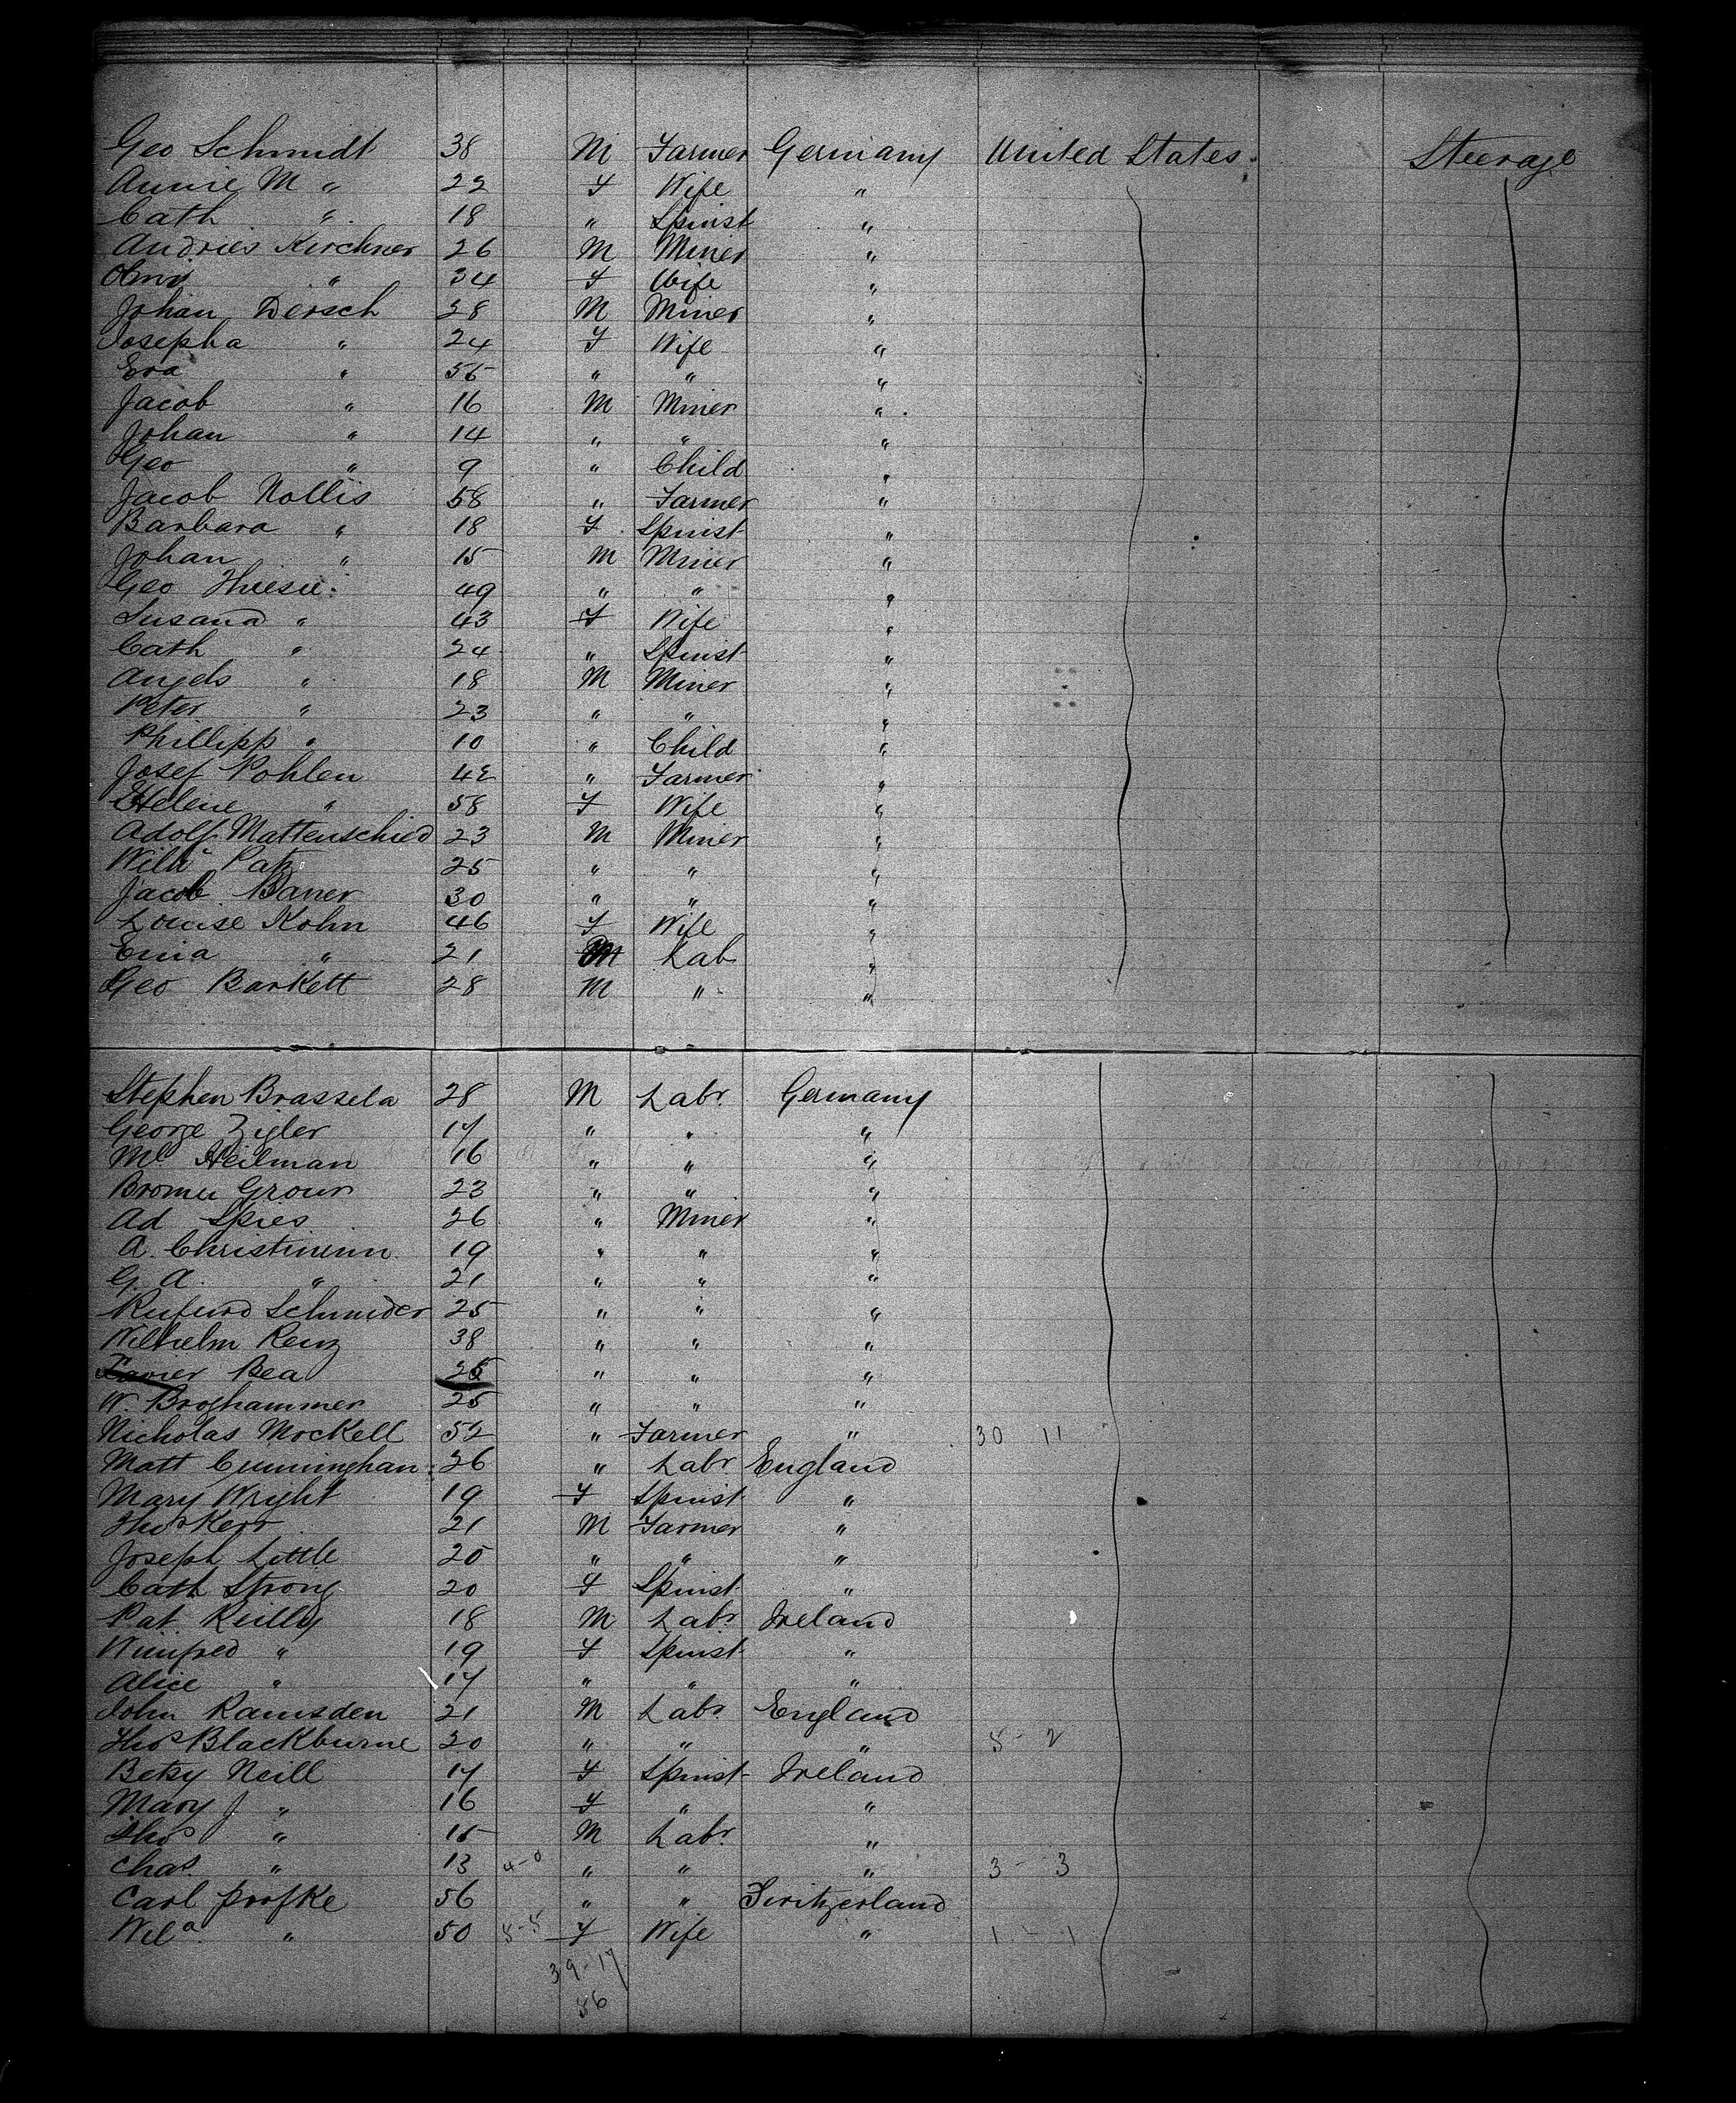 Geo Schmidt 38 M Farmer Germany United States. Steerage
Annie M " 22 F Wife "
Cath " 18 " Spinst "
Andries Kirchner 26 M Miner "
" 34 F Wife "
Johan Dersch 28 M Miner "
Josepha " 24 F Wife "
Eva " 55 " " "
Jacob " 16 M Miner "
Johan " 14 " " "
Geo " 9 " Child "
Jacob Nollis 58 " Farmer "
Barbara " 18 F Spinst "
Johan " 15 M Miner "
Geo 49 " " "
Susana " 43 F Wife "
Cath " 24 " Spinst "
Angels " 18 M Miner "
Peter " 23 " " "
Phillipp " 10 " Child "
Josef Pohlen 42 " Farmer "
Helene " 58 F Wife "
Adolf Mattenschied 23 M Miner "
Wilh 25 " " "
Jacob Baner 30 " " "
Louise Kohn 46 F Wife "
" 21 M Lab "
Geo Barkett 28 M " "
Stephen Brassela 28 M Labr Germany
George Zigler 17 " " "
Mc Heilman 16 " " "
Groun 23 " " "
Ad Spies 26 " Miner "
A. Christinenn 19 " " "
G. A. " 21 " " "
Schnider 25 " " "
Wilhelm Renz 38 " " "
Xavier Bea 25 " " "
W. Broghammer 25 " " "
Nicholas Mockell 52 " Farmer " 30 11
Matt Cunninghan 26 " Labr England
Mary Wright 19 F Spinst "
Thos Kerr 21 M Farmer "
Joseph Little 20 " " "
Cath Strong 20 F Spinst "
Pat Reilly 18 M Labr Ireland
Winifred " 19 F Spinst "
Alice " 17 " " "
John Ramsden 21 M Labr England
Thos Blackburne 20 " " " 5 - 2
Betsy Neill 17 F Spinst Ireland
Mary J " 16 F " "
Thos " 15 M Labr "
Chas " 13 4-0 " " " 3 - 3
Carl Profke 56 " " Switzerland
Wila " 50 5-5 F Wife " 1 - 1
39-17
56